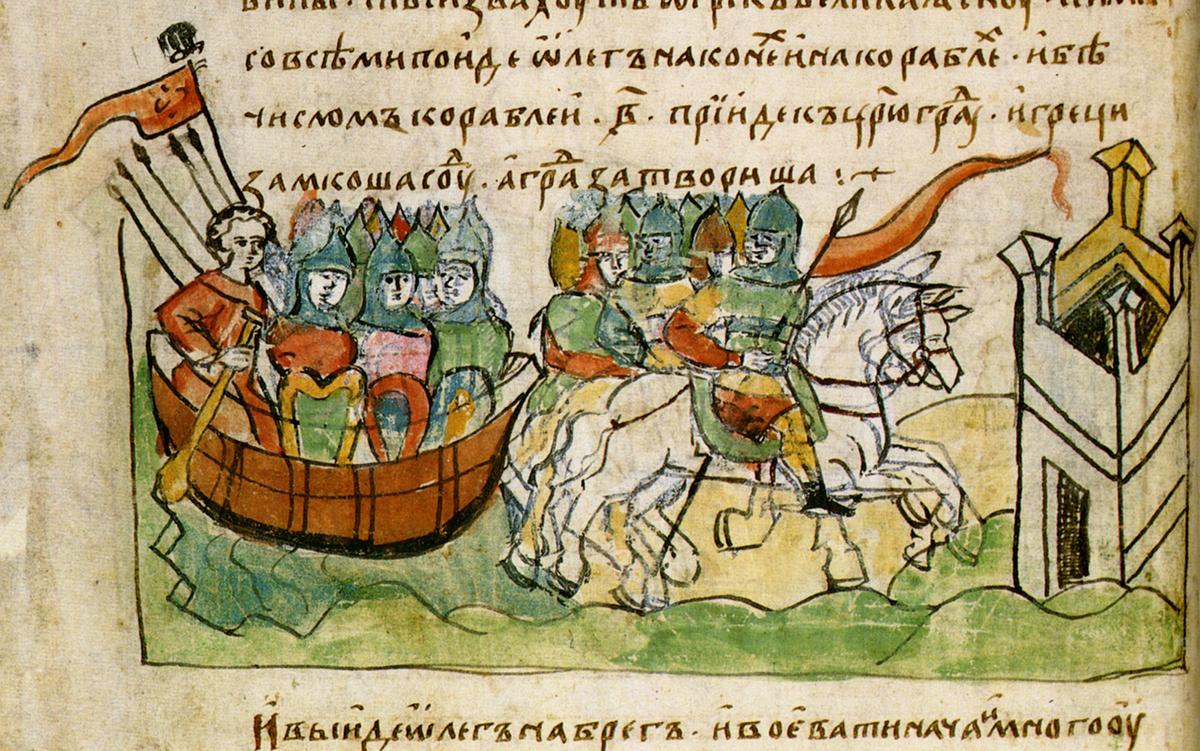 со всѣми поиде ѡлегъ на конеⷯ и на кораблеⷯ · и бѣ
числомъ кораблеи · в҃ · приїде къ цр҃югра(д) · и греци
замкоша соуⷣ · а граⷣ затвориша :·
И выиде ѡлегъ на брегъ · и воевати нача · и многоу